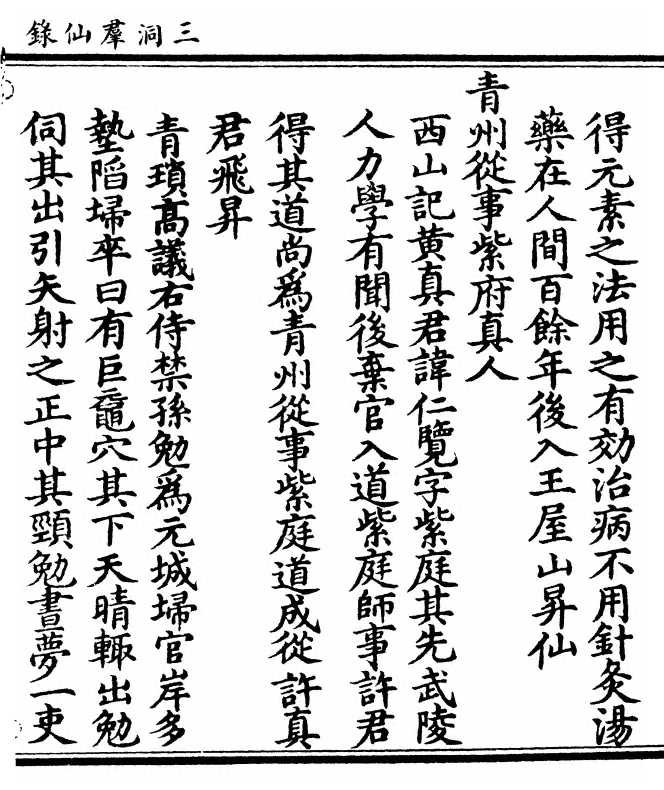 三洞羣仙錄
得元素之法用之有効治病不用針灸湯
藥在人間百餘年後入王屋山昇仙
青州從事紫府真人
西山記黄真君諱仁覽字紫庭其先武陵
人力學有聞後棄官入道紫庭師事許君
得其道尚爲青州從事紫庭道成從許真
君飛昇
青瑣髙議右侍禁孫勉爲元城埽官岸多
墊陷埽卒曰有巨黿穴其下天晴輙出勉
伺其出引矢射之正中其頸勉晝夢一吏